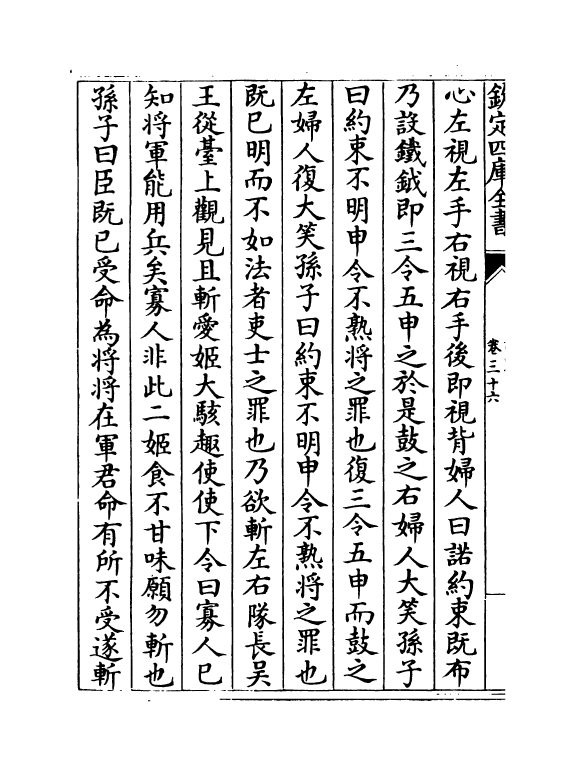 欽定四庫全書
卷三十六
心左視左手右視右手後即視背婦人曰諾約束既布
乃設鐵鉞即三令五申之於是鼓之右婦人大笑孫子
曰約束不明申令不熟將之罪也復三令五申而鼓之
左婦人復大笑孫子曰約束不明申令不熟將之罪也
既已明而不如法者吏士之罪也乃欲斬左右隊長吴
王從臺上觀見且斬愛姬大駭趣使使下令曰寡人已
知將軍能用兵矣寡人非此二姬食不甘味願勿斬也
孫子曰臣既已受命為將將在軍君命有所不受遂斬